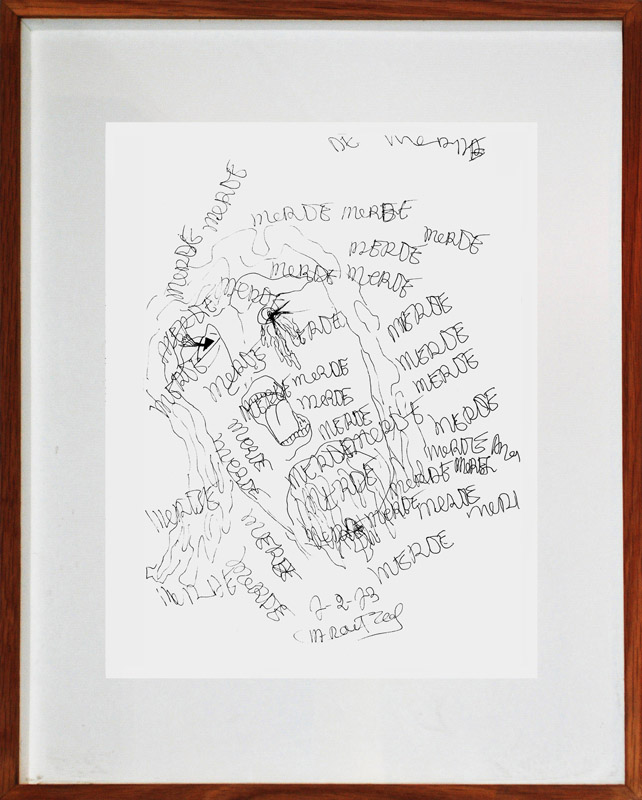 DE MERDE
MERDE
MERDE MERDE
MERDE
MERDE MERDE
MERDE
MERDE MERDE
MERDE
MERDE
MERDE
MERDE
MERDE
MERDE
MERDE
MERDE
MERDE
MERDE
MERDE
MERDE
MERDE
MERDE
MERDE MERDE
MERDE
MERDE
MERDE
MERDE
MERDE MERDE
MERDE
MERDE MERDE MERDE MERD
MERDE
MERDE
MERDE
MERDE
MERDE